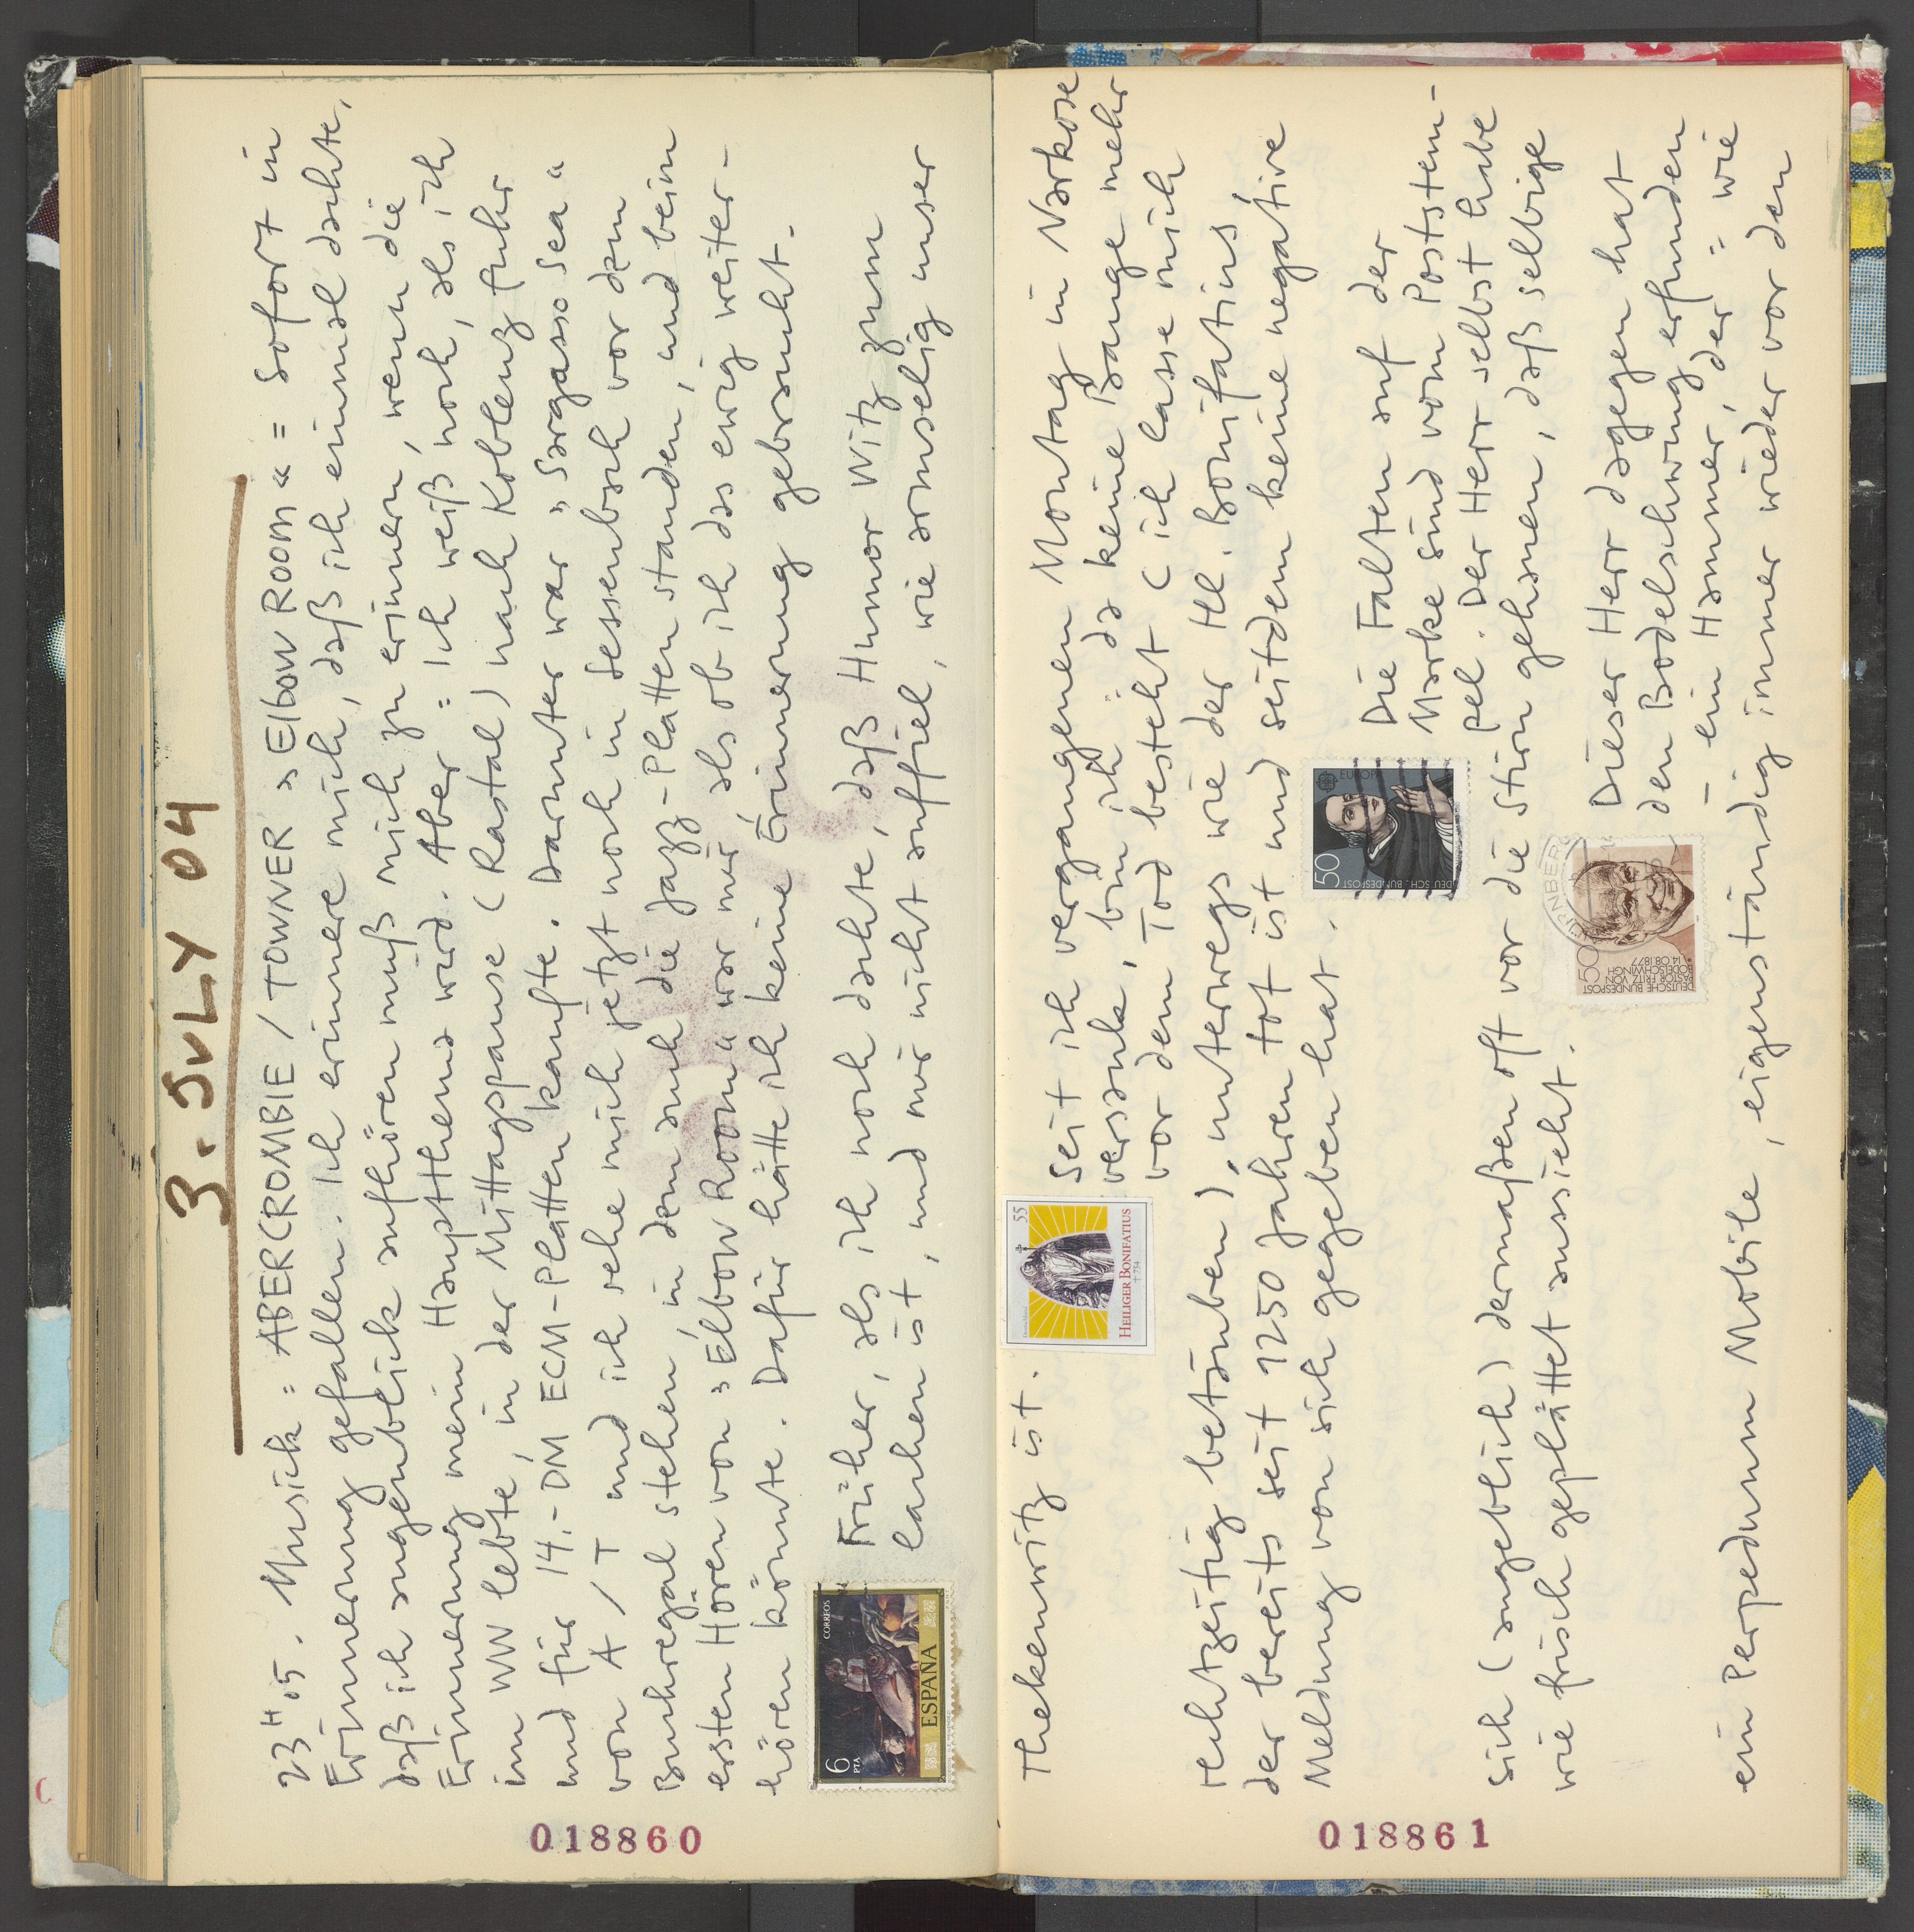 3. JULY 04
23ᴴ05. Musich: ABERCROMBIE / TOWNER »Elbow Room« = Sofort in
Erinnerung gefallen. Ich erinnere mich, daß ich einmal dachte,
daß ich augenblick aufhören muß mich zu erinnern, wenn die
Erinnerung mein Hauptthema wird. Aber = ich weiß noch, als ich
im WW lebte, in der Mittagspause (Rastal) nach Koblenz fuhr
und für 14.-DM ECM-Platten kaufte. Darunter war »Sargasso Sea«
von A/T und ich sehe mich jetzt noch in Sessenbach vor dem
Buchregal stehen, in dem auch die Jazz-Platten standen, und beim
ersten Hören von »Elbow Room« war mir als ob ich das ewig weiter-
hören könnte. Dafür hätte ich keine Erinnerung gebraucht.
Früher, als ich noch dachte, daß Humor Witz zum
Lachen ist, und mir nicht auffiel, wie armselig unser
6
PTA
CORREOS
ESPAÑA
018860
Thekenwitz ist.
Deutschland
55
HEILIGER BONIFATIUS
† 754
Seit ich vergangenen Montag in Narkose
versank, bin ich = da keine Bange mehr
vor dem Tod besteht (ich lasse mich
rechtzeitig betäuben), unterwegs wie der Hl. Bonifatius,
der bereits seit 1250 Jahren tot ist und seitdem keine negative
Meldung von sich gegeben hat.
50
DEUTSCHE BUNDESPOST
EUROPA
Die Falten auf der
Marke sind vom Poststem-
pel. Der Herr selbst habe
sich (angeblich) dermaßen oft vor die Stirn gehauen, daß selbige
wie frisch geplättet aussieht.
DEUTSCHE BUNDESPOST
50
PASTOR FRITZ VON
BODELSCHWINGH
* 14.08.1877
Dieser Herr dagegen hat
den Bodelschwung erfunden
– ein Hammer, der = wie
ein Perpeduum Mobile, eigenständig immer wieder vor den
018861